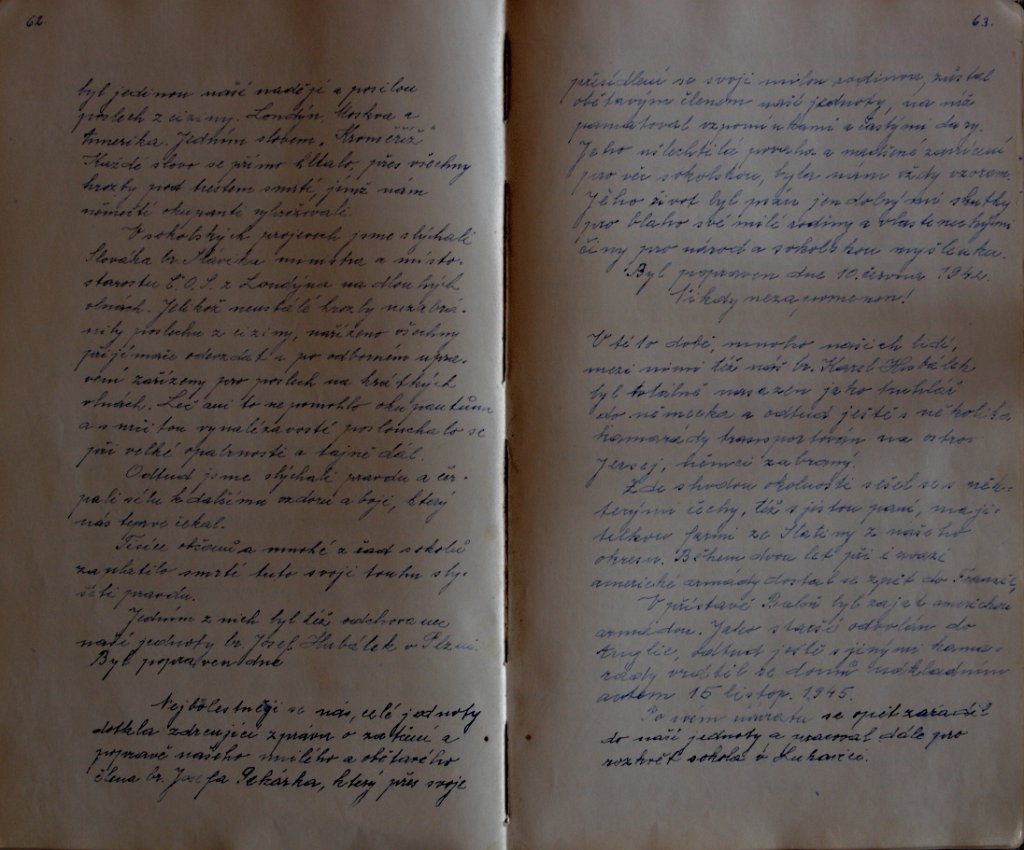 62.
byl jedinou naší nadějí a posilou
poslech z ciziny. Londýn, Moskva a
Amerika. Jedním slovem „Kroměříž"
Každé slovo se přímo hltalo, přes všechny
hrozby pod trestem smrti, jímž nám
němečtí okupanti vyhrožovali.
V sokolských projevech jsme slýchali
Slováka br. Slávika ministra a místo-
starostu Č.O.S. z Londýna na dlouhých
vlnách. Jelikož neustálé hrozby nezabrá-
nily poslechu z ciziny, nařízeno všechny
přijímače odevzdat a po odborném upra-
vení zařízeny pro poslech na krátkých
vlnách. Leč ani to nepomohlo okupantům
a s určitou vynalézavostí poslouchalo se
při velké opatrnosti a tajně dál.
Odtud jsme slýchali pravdu a čer-
pali sílu k dalšímu vzdoru a boji, který
nás teprve čekal.
Tisíce občanů a mnohé z řad sokolů
zaplatilo smrtí tuto svoji touhu sly-
šeti pravdu.
Jedním z nich byl též odchovanec
naší jednoty br. Josef Hubálek v Plzni.
Byl popraven dne
Nejbolestněji se nás, celé jednoty
dotkla zdrcující zpráva o zatčení a
popravě našeho milého a obětavého
člena br. Josefa Pekárka, který přes svoje
63.
přesídlení se svojí milou rodinou, zůstal
obětavým členem naší jednoty, na niž
pamatoval vzpomínkami a častými dary.
Jeho ušlechtilá povaha a nadšené zanícení
pro věc sokolskou, byla nám vždy vzorem.
Jeho život byl psán jen dobrými skutky
pro blaho své milé rodiny a vlasteneckými
činy pro národ a sokolskou myšlenku.
Byl popraven dne 10. června 1942.
Nikdy nezapomenem!
V této době, mnoho našich lidí,
mezi nimi též náš br. Karel Hubálek
byl totálně nasazen jako truhlář
do německa a odtud ještě s několika
kamarády transportován na ostrov
Jersej, němci zabraný.
Zde shodou okolností sešel se s něk-
terými čechy, též s jistou paní, maji-
telkou farmi ze Slatiny z našeho
okresu. Během dvou let při invazi
americké armády dostal se zpět do Francie,
V přístavě Buloň byl zajat americkou
armádou. Jako starší odvolán do
Anglie, odtud ještě s jinými kama-
rády vrátil se domů nákladním
autem 15 listop. 1945.
Po svém návratu se opět zařadil
do naší jednoty a pracoval dále pro
rozkvět sokola v Lukavici.